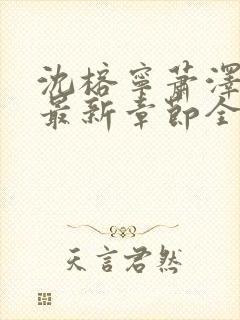 沈榕寧萧澤
最新章節全
天言君然